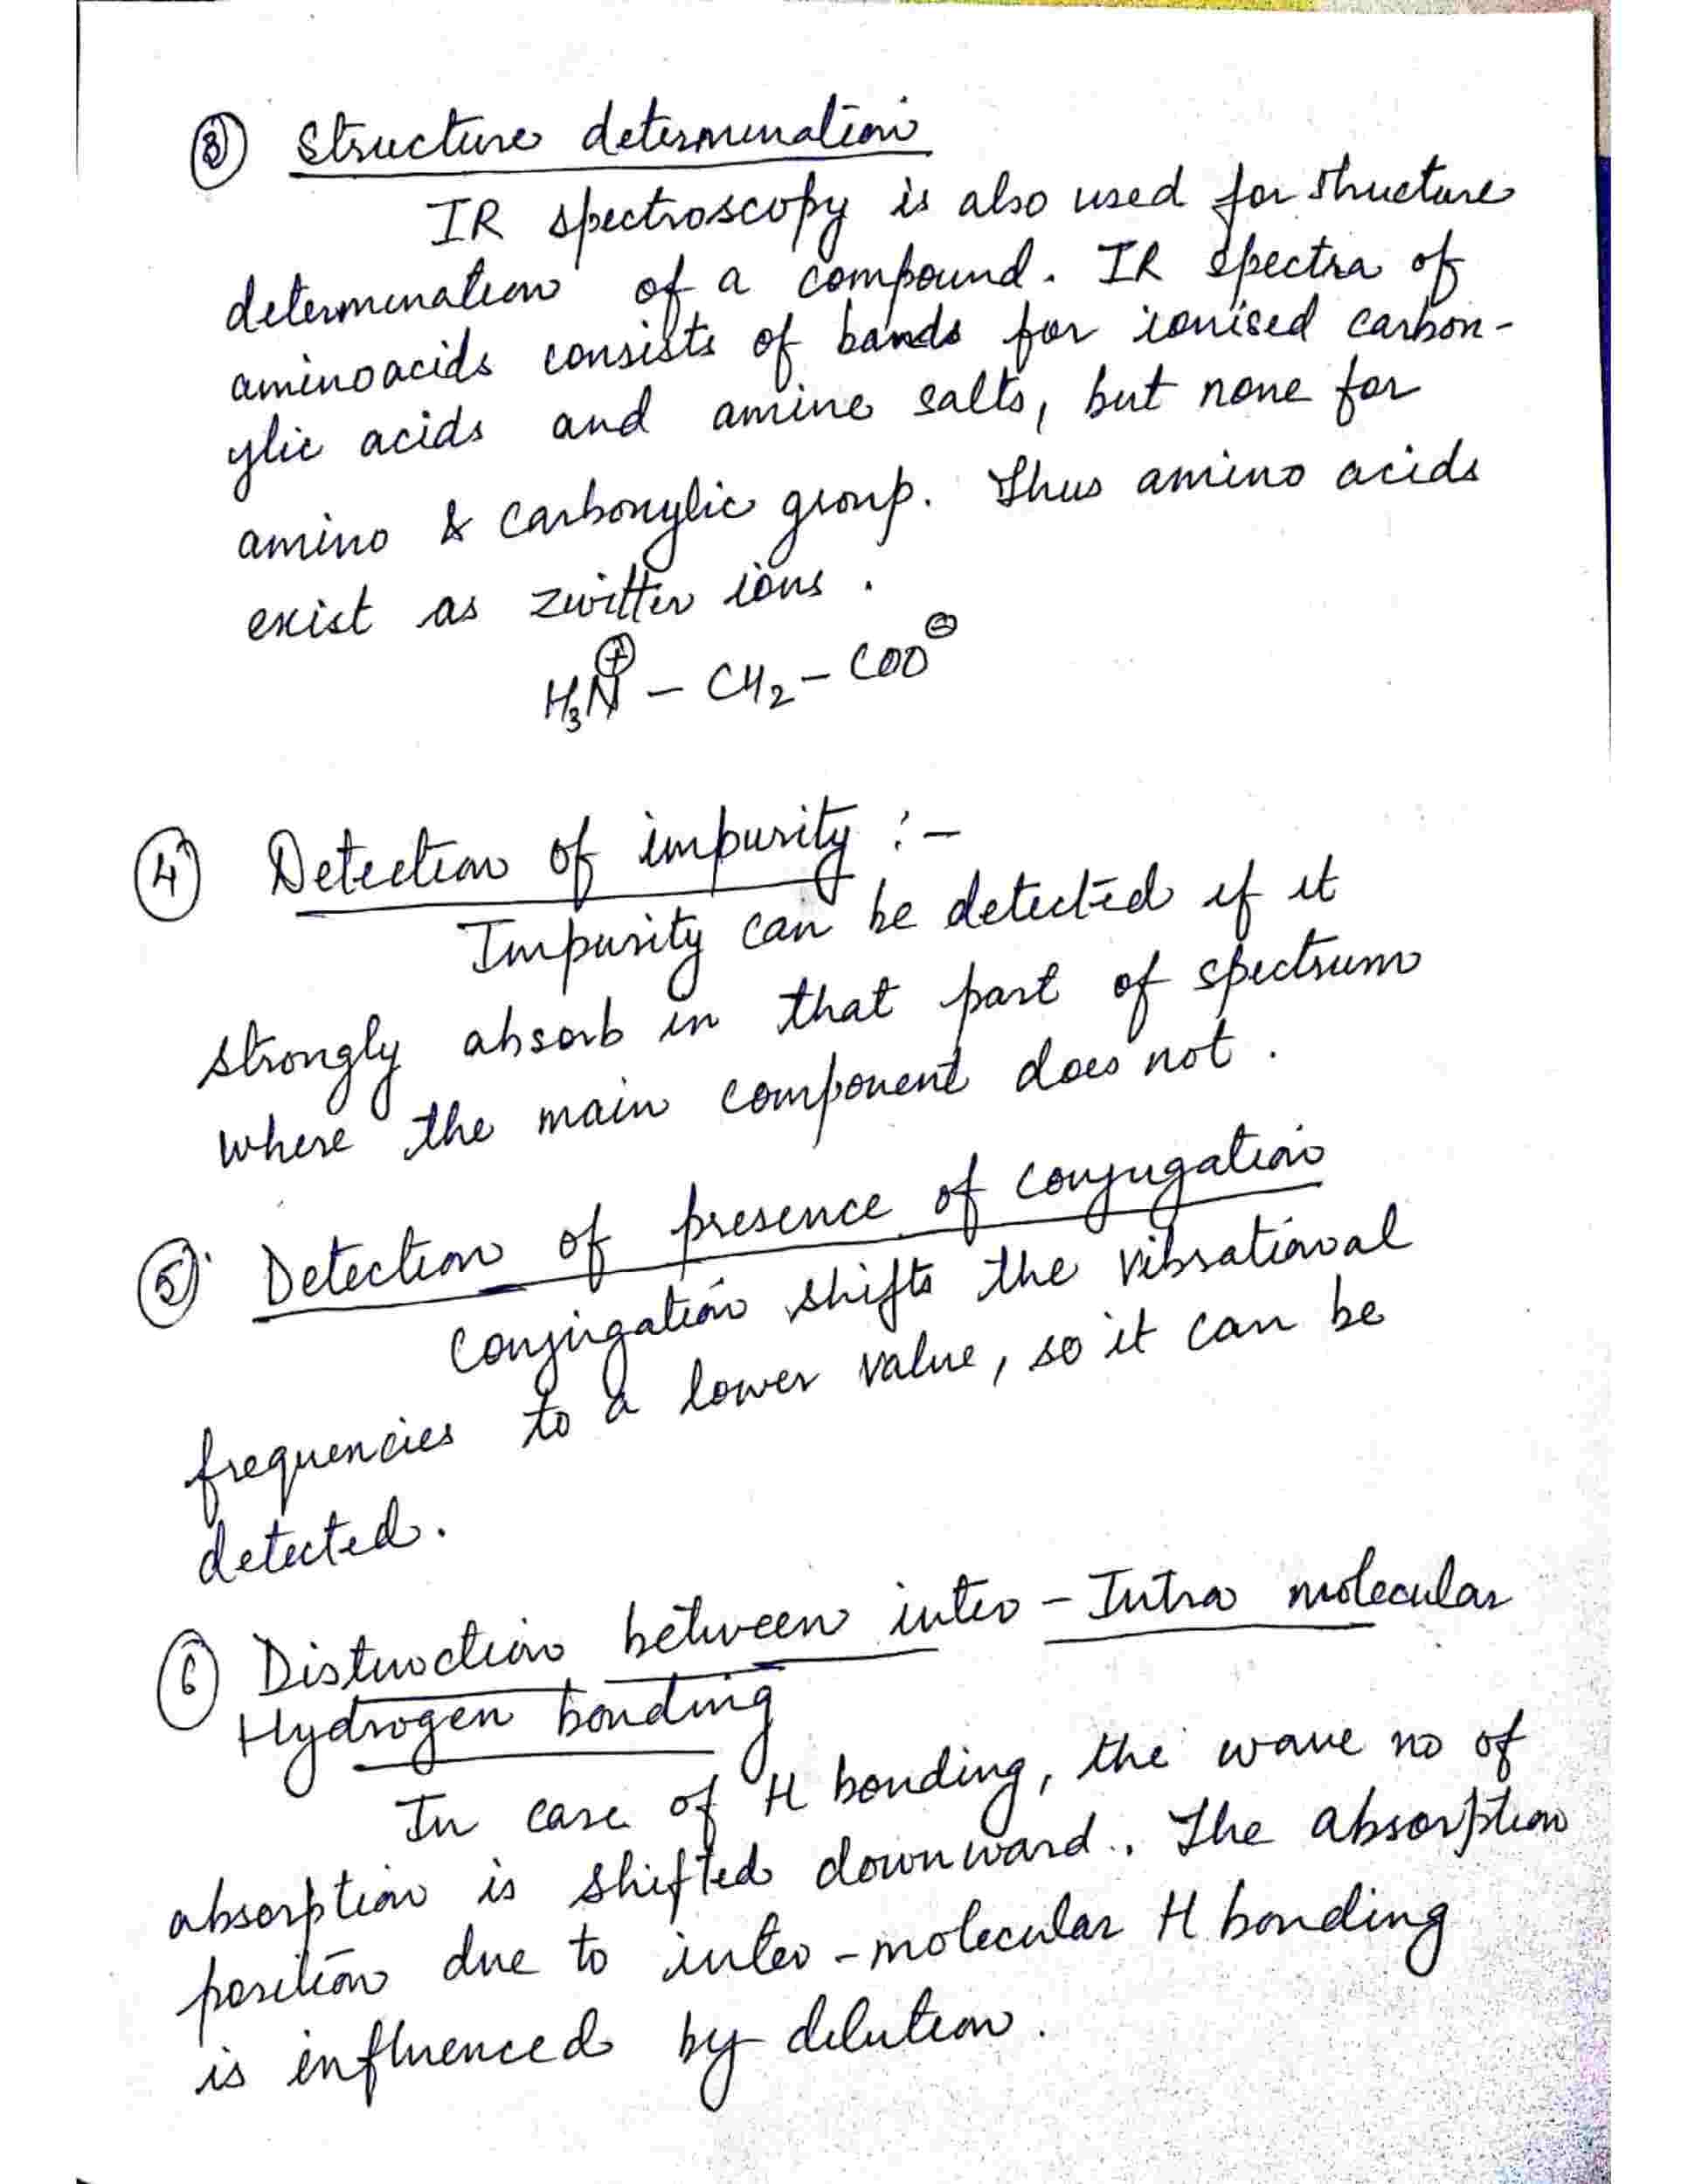 ③ Structure determination
IR spectroscopy is also used for structure
determination of a compound. IR spectra of
aminoacids consists of bands for ionised carbon-
ylic acids and amine salts, but none for
amino & carboxylic group. Thus amino acids
exist as zwitter ions.
H₃N⊕ – CH₂ – COO⊖
④ Detection of impurity :-
Impurity can be detected if it
strongly absorb in that part of spectrum
where the main component does not.
⑤ Detection of presence of conjugation
Conjugation shifts the vibrational
frequencies to a lower value, so it can be
detected.
⑥ Distinction between inter - Intra molecular
Hydrogen bonding
In case of H bonding, the wave no of
absorption is shifted downward. The absorption
position due to inter-molecular H bonding
is influenced by dilution.